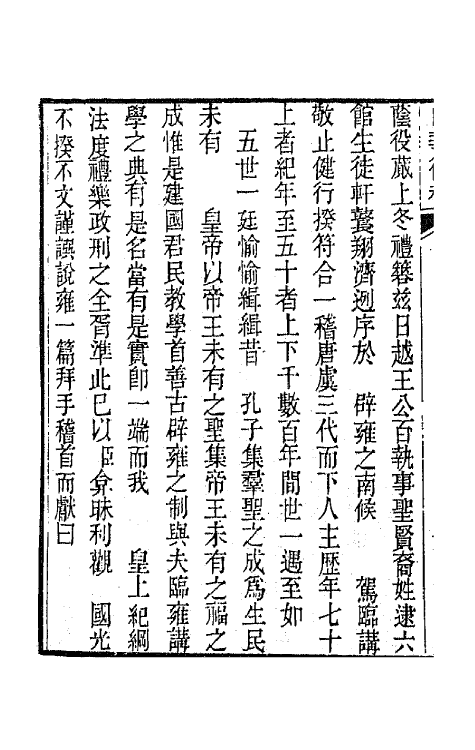 蔭役蕆上冬禮簉玆日越王公百執事聖賢裔姓逮六
館生徒軒鼚翔濟迾序於　辟雍之南候　駕臨講
敬止健行揆符合一稽唐虞三代而下人主歷年七十
上者紀年至五十者上下千數百年間世一遇至如
五世一廷愉愉緝緝昔　孔子集羣聖之成爲生民
未有　皇帝以帝王未有之聖集帝王未有之福之
成惟是建國君民教學首善古辟雍之制與夫臨雍講
學之典有是名當有是實卽一端而我　皇上紀綱
法度禮樂政刑之全胥準此已以臣弇昧利觀　國光
不揆不文謹譔說雍一篇拜手稽首而獻曰